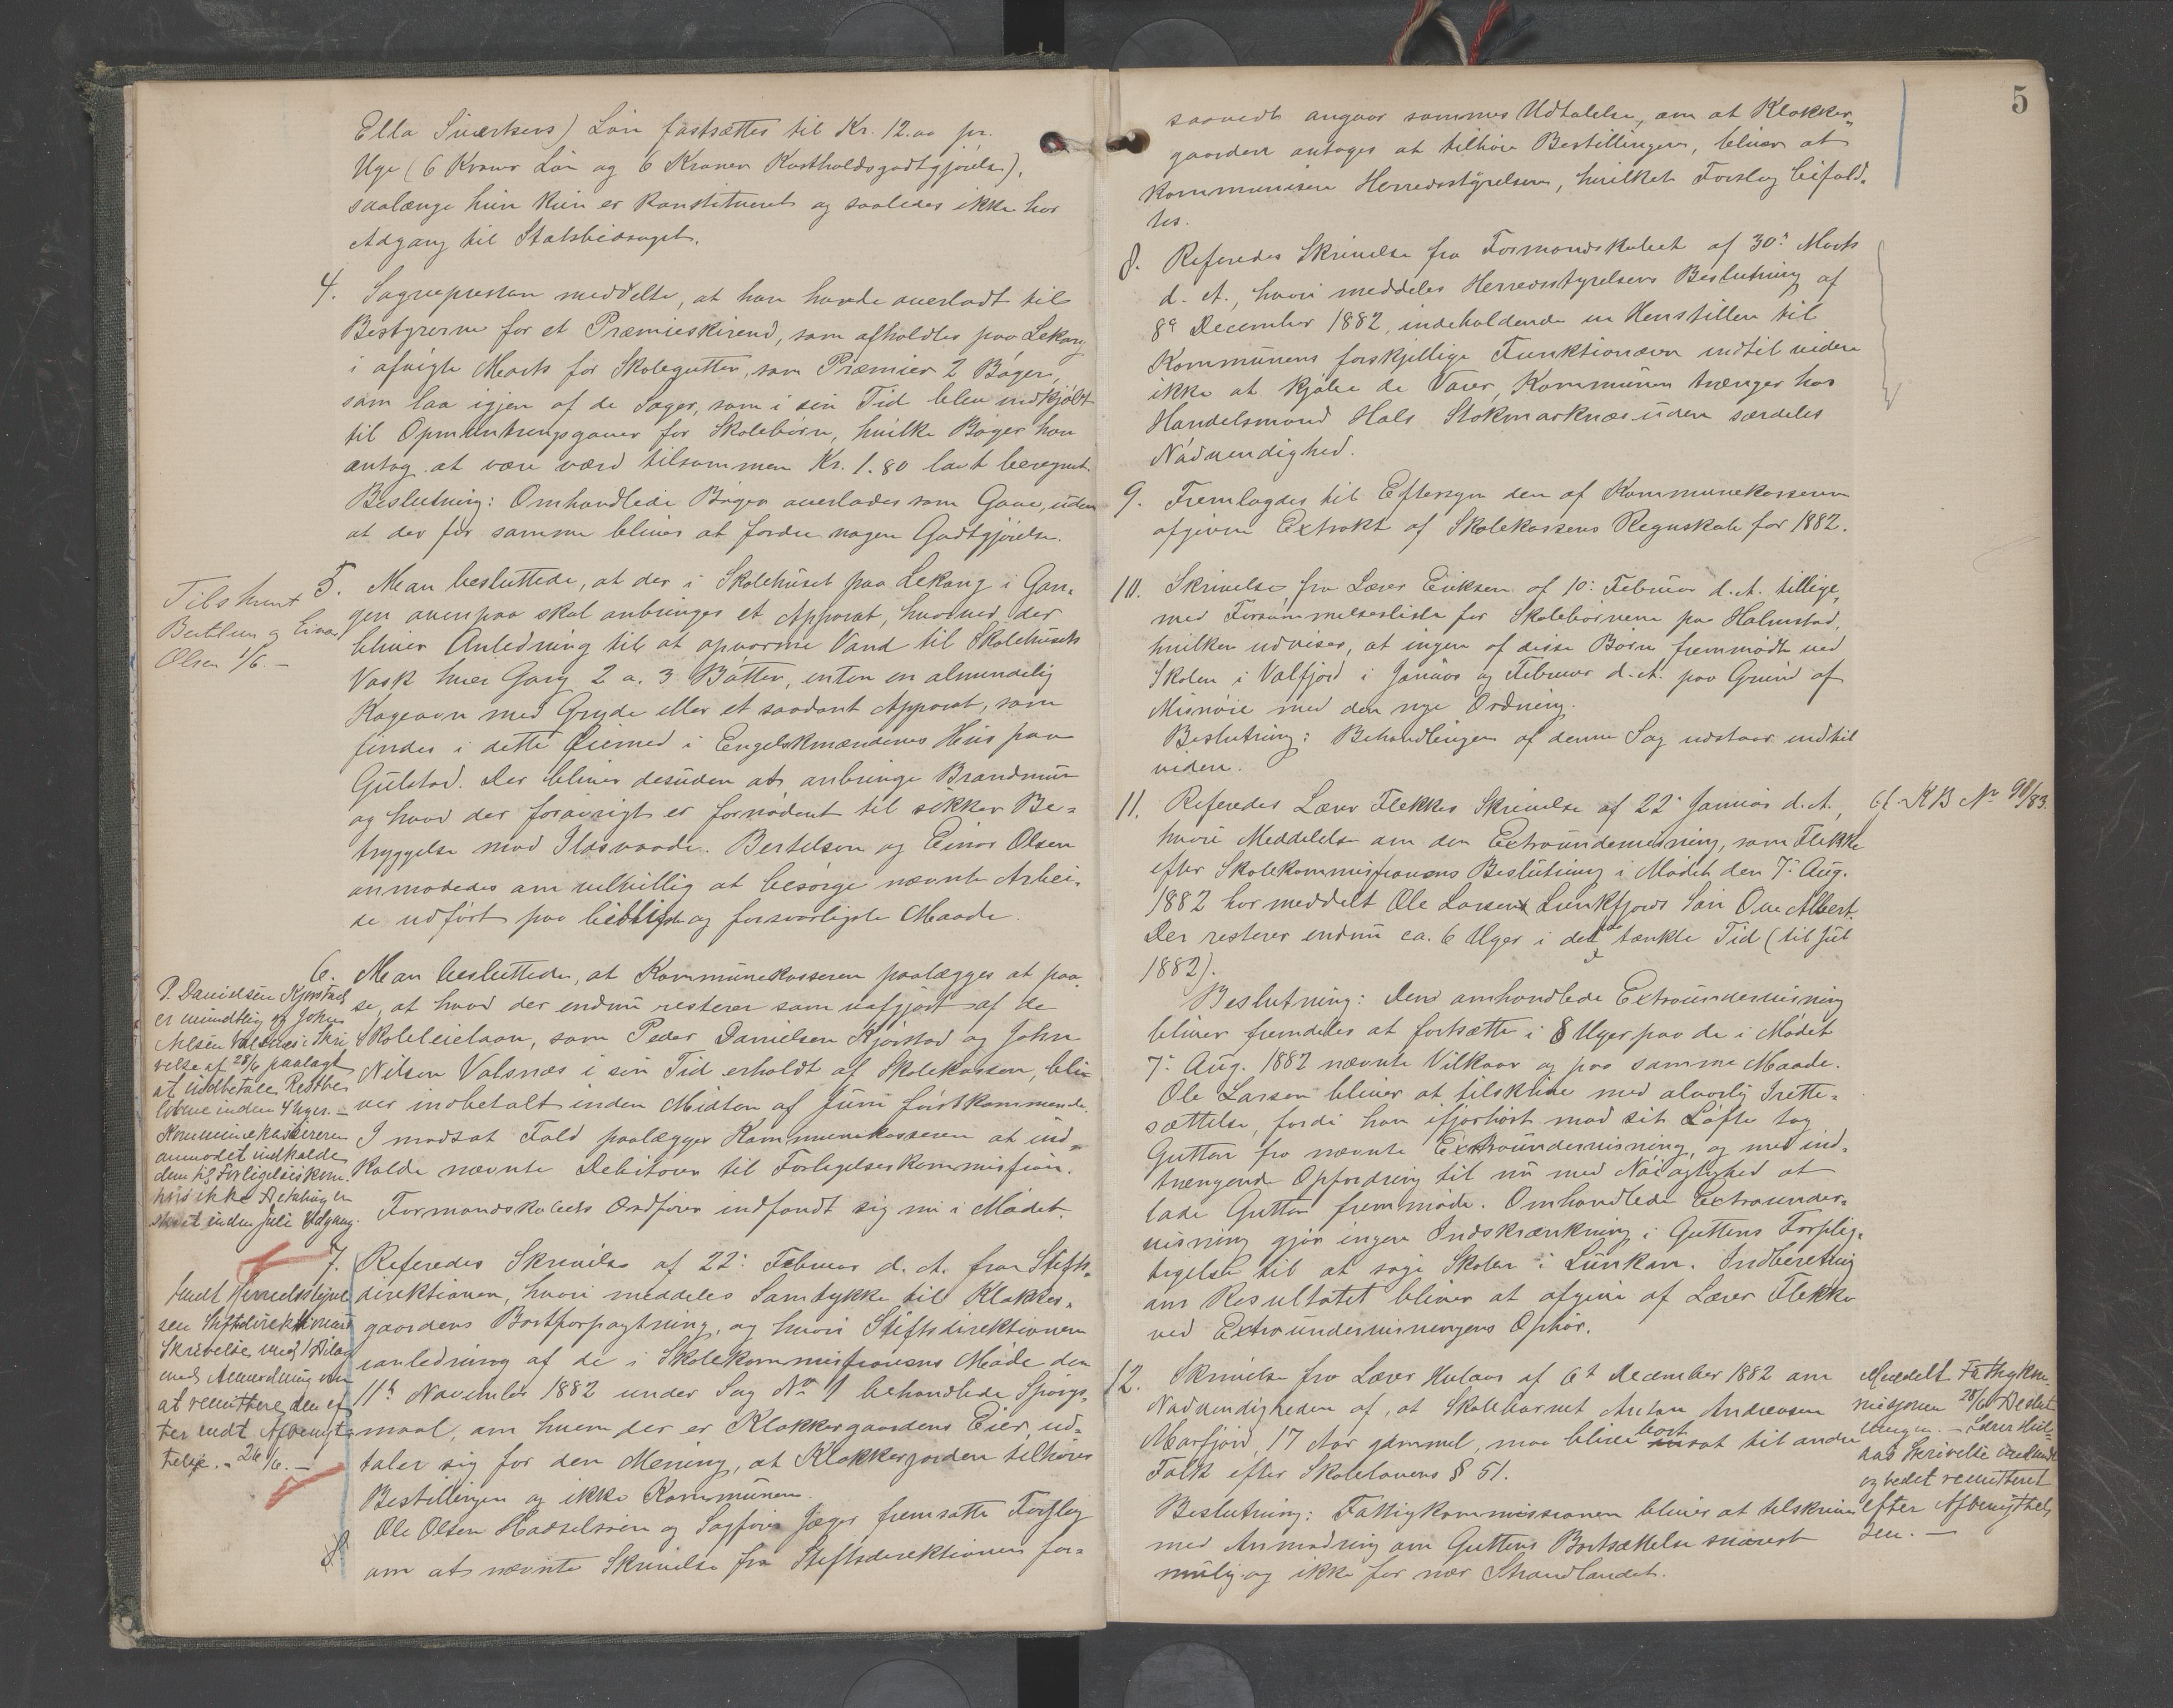 Ella Sivertsens) Løn fastsættes til Kr. 12.00 pr.
Uge (6 Kroner Løn og 6 Kroner Kostholdsgodtgjørelse),
saalænge hun kun er konstitueret og saaledes ikke har
Adgang til Statsbidraget.
4. Sognepresten meddelte, at han havde overladt til
Bestyrerne for et Præmieskirend, som afholdtes paa Lekang
i afvigte Marts for Skolegutter, som Præmier 2 Bøger,
som laa igjen af de Bøger, som i sin Tid blev indkjøbt
til Opmuntringsgaver for Skolebørn, hvilke Bøger han
antog at være værd tilsammen Kr. 1.80 lavt beregnet.
Beslutning: Omhandlede Bøger overlades som Gave, uden
at der for samme bliver at fordre nogen Godtgjørelse.
Tilskrevet
Bertelsen og Einar
Olsen 1/6. —
5. Man besluttede, at der i Skolehuset paa Lekang i Gan-
gen ovenpaa skal anbringes et Apparat, hvorved der
bliver Anledning til at opvarme Vand til Skolehusets
Vask hver Gang 2 a. 3 Bøtter, enten en almindelig
Kogeovn med Gryde eller et saadant Apparat, som
findes i dette Øiemed i Engelskmændenes Hus paa
Gulstad. Der bliver desuden at anbringe Brandmur
og hvad der forøvrigt er fornødent til sikker Be-
tryggelse mod Ildsvaade. Bertelsen og Einar Olsen
anmodedes om velvillig at besørge nævnte Arbei-
de udført paa billigste og forsvarligste Maade.
6. Man besluttede, at Kommunekassereren paalægges at paa-
se, at hvad der endnu resterer som uafgjort af de
Skoleleielaan, som Peder Danielsen Kjørstad og John
Nilsen Valsnæs i sin Tid erholdt af Skolekassen, bli-
ver indbetalt inden Midten af Juni førstkommende.
I modsat Fald paalægges Kommunekassereren at ind-
kalde nævnte Debitorer til Forligelseskommission.
P. Danielsen Kjørstad
er mundtlig og John
Nilsen Valsnæs i Skri
velse af 28/6 paalagt
at indbetale Restbe
løbene inden 4 Uger. —
Kommunekassereren
anmodet indkalde
dem til Forligelseskom.
hvis ikke Betaling er
skeet inden Juli Udgang.
Formandskabets Ordfører indfandt sig nu i Mødet.
7. Referedes Skrivelse af 22: Februar d. A. fra Stifts-
direktionen, hvori meddeles Samtykke til Klokker-
gaardens Bortforpagtning, og hvori Stiftsdirektionen
ianledning af de i Skolekommissionens Møde den
11te November 1882 under Sag No 1 behandlede Spørgs-
maal, om hvem der er Klokkergaardens Eier, ud-
taler sig for den Mening, at Klokkerjorden tilhører
Bestillingen og ikke Kommunen.
Ole Olsen Hadselsøen og Sagfører Jæger fremsatte Forslag
om at nævnte Skrivelse fra Stiftsdirektionen for-
Sendt Herredsstyrel
sen Stiftsdirektionens
Skrivelse med 1 Bilag
med Anmodning om
at remittere den ef
ter endt Afbenyt-
telse. — 26/6. —
5
saavidt angaar sammes Udtalelse, om at Klokker-
gaarden antages at tilhøre Bestillingen, bliver at
kommunisere Herredsstyrelsen, hvilket Forslag bifald-
tes.
8. Referedes Skrivelse fra Formandskabet af 30: Marts
d. A., hvori meddeles Herredsstyrelsens Beslutning af
8de December 1882, indeholdende en Henstillen til
Kommunens forskjellige Funktionærer indtil videre
ikke at kjøbe de Varer, Kommunen trænger hos
Handelsmand Hals Stokmarknæs uden særdeles
Nødvendighed.
9. Fremlagdes til Eftersyn den af Kommunekassereren
afgivne Extrakt af Skolekassens Regnskab for 1882.
10. Skrivelse fra Lærer Eriksen af 10: Februar d. A. tillige-
med Forsømmelsesliste for Skolebørnene paa Holmstad,
hvilken udviser, at ingen af disse Børn fremmødte ved
Skolen i Valfjord i Januar og Februar d. A. paa Grund af
Misnøie med den nye Ordning.
Beslutning: Behandlingen af denne Sag udstaar indtil
videre.
11. Referedes Lærer Flekkes Skrivelse af 22: Januar d. A.,
hvori Meddelelse om den Extraundervisning, som Flekke
efter Skolekommissionens Beslutning i Mødet den 7: Aug.
1882 har meddelt Ole Larsens Lunkfjords Søn Ove Albert.
Der resterer endnu ca. 6 Uger i den tænkte Tid (til Jul
1882).
Cf. KB No 98/83.
Beslutning: Den omhandlede Extraundervisning
bliver fremdeles at fortsætte i 8 Uger paa de i Mødet
7: Aug. 1882 nævnte Vilkaar og paa samme Maade.
Ole Larsen bliver at tilskrive med alvorlig Irette-
sættelse, fordi han ifjorhøst mod sit Løfte tog
Gutten fra nævnte Extraundervisning, og med ind-
trængende Opfordring til nu med Nøiagtighed at
lade Gutten fremmøde. Omhandlede Extraunder-
visning gjør ingen Indskrænkning i Guttens Forplig-
tigelse til at søge Skolen i Lunkan. Indberetning
om Resultatet bliver at afgive af Lærer Flekke
ved Extraundervisningens Ophør.
12. Skrivelse fra Lærer Hulaas af 6te December 1882 om
Nødvendigheden af, at Skolebarnet Anton Andreasen
Marfjord, 17 Aar gammel, maa blive bortsat til andre
Folk efter Skolelovens § 51.
Beslutning: Fattigkommissionen bliver at tilskrive
med Anmodning om Guttens Bortsættelse snarest
mulig og ikke for nær Strandlandet.
Meddelt Fattigkom-
missjonen 28/6 Beslut
ningen. — Lærer Hul-
aas Skrivelse medsendt
og bedet remitteret
efter Afbenyttel
sen. —